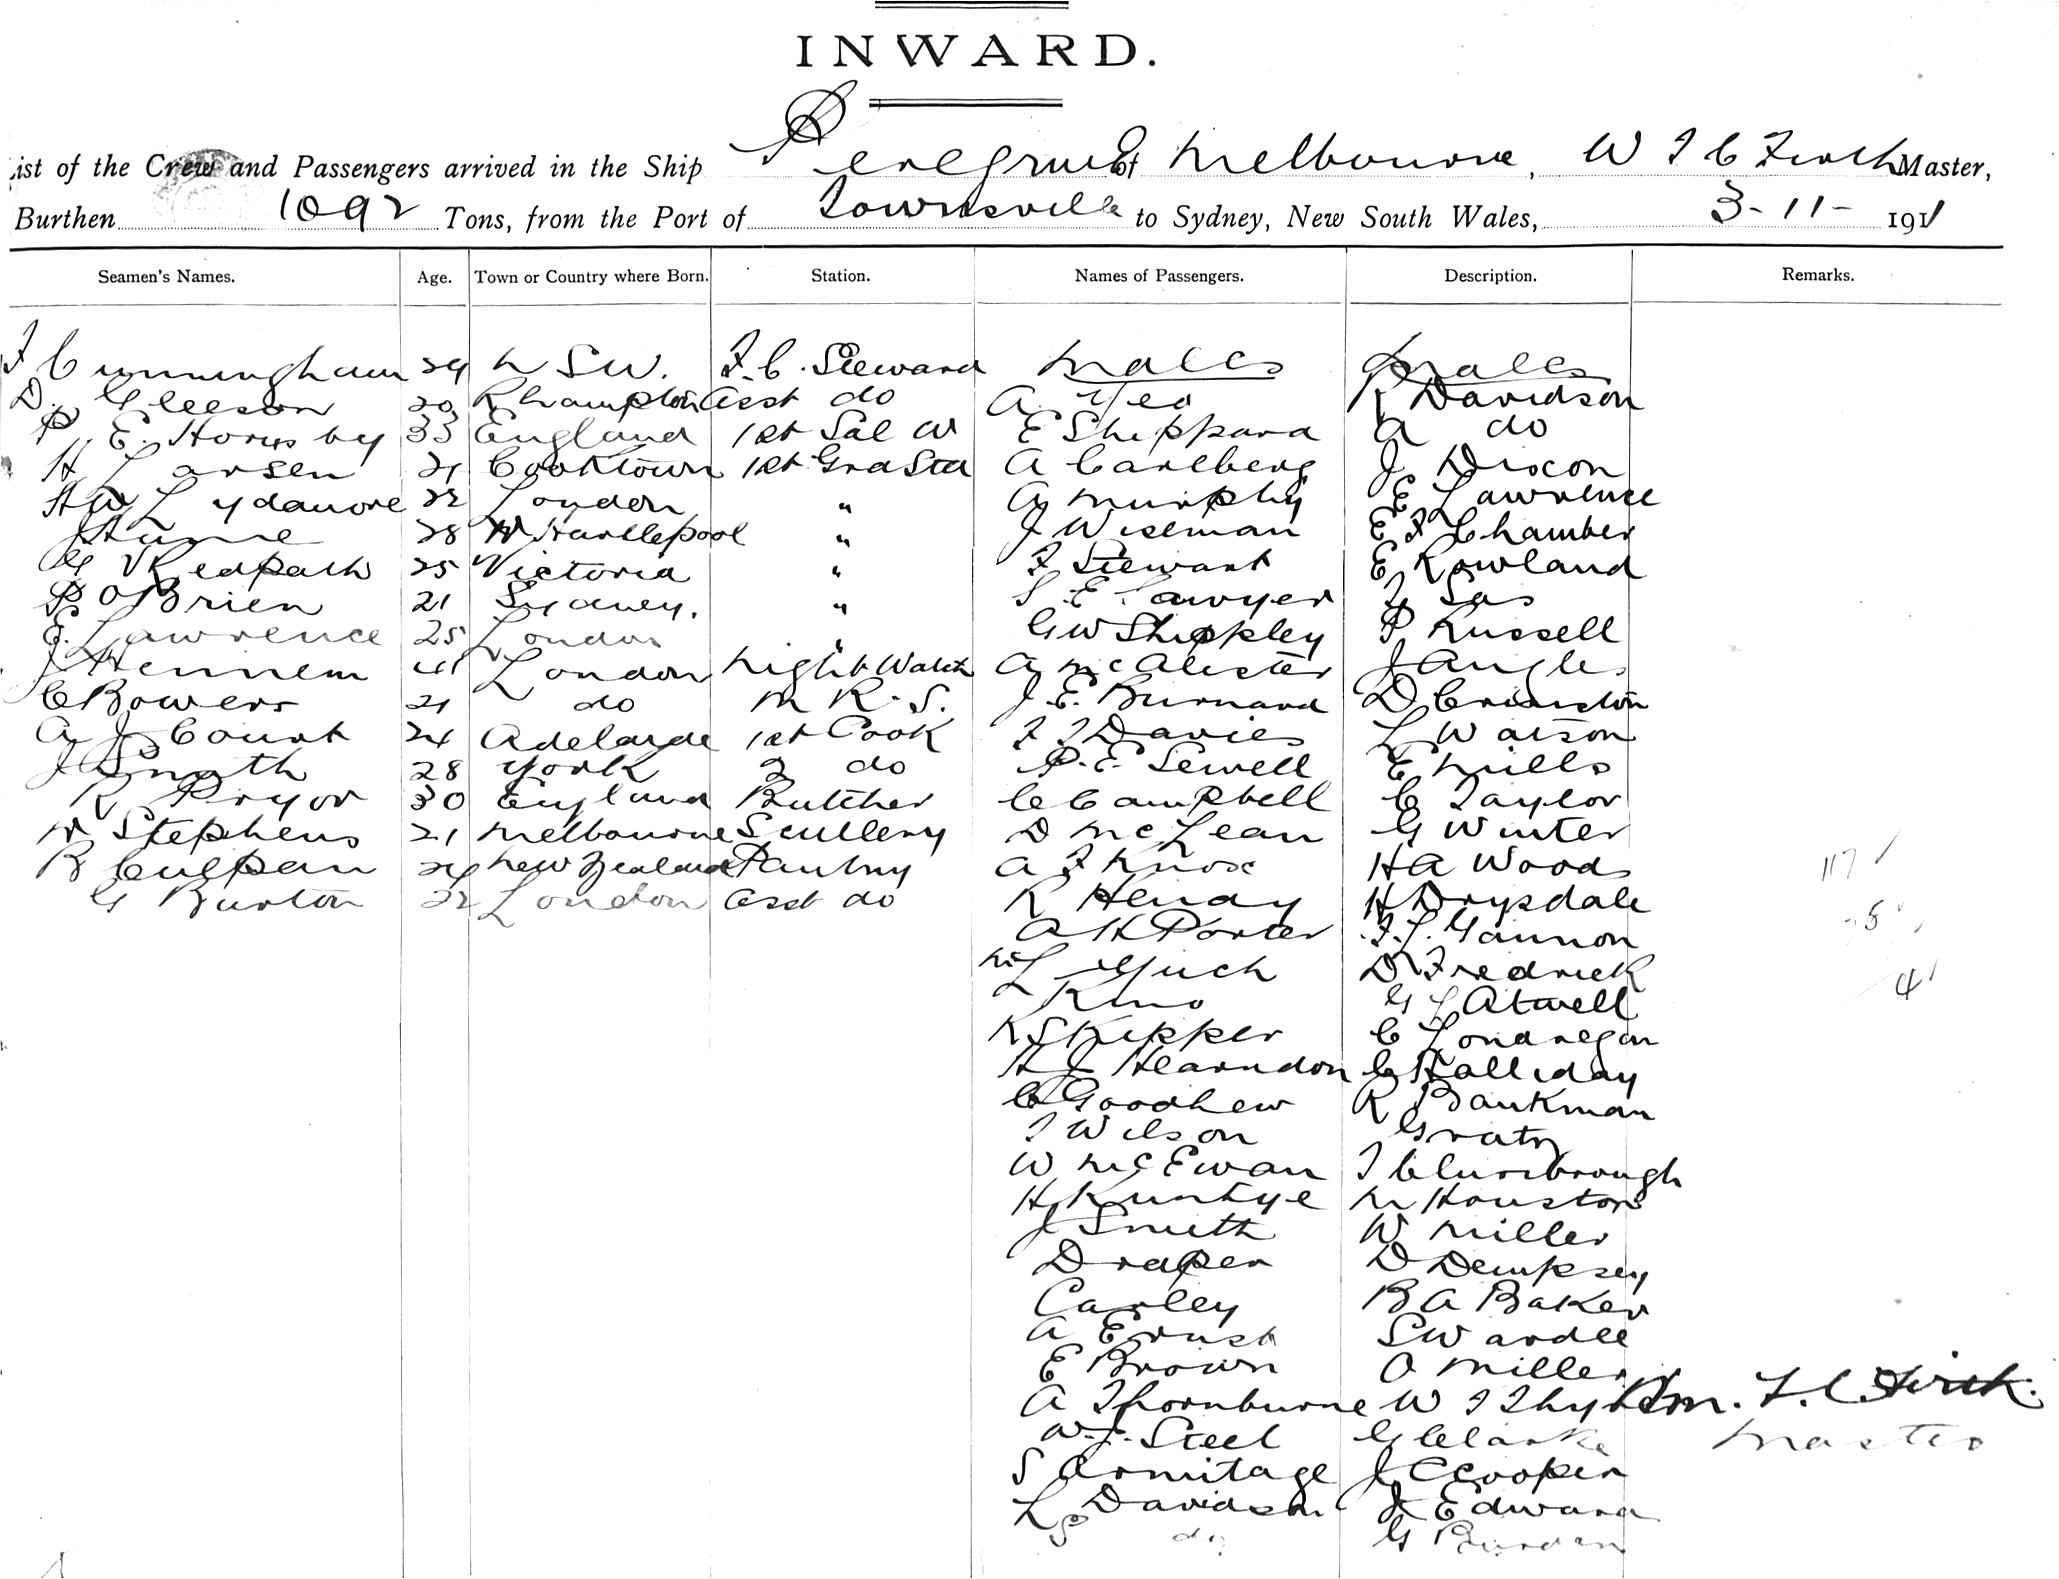 INWARD.
ist of the Crew and Passengers arrived in the Ship Peregrine of Melbourne, W T C Firth Master,
Burthen 1092 Tons, from the Port of Townsville to Sydney, New South Wales, 3-11- 1911
Seamen's Names. Age. Town or Country where Born. Station. Names of Passengers. Description. Remarks.
F Cunningham 29 N SW. F.C. Steward Males Males
D. Gleeson 20 Rhampton Asst do A Yeo R Davidson
P. E. Hornsby 33 England 1st Sal W E Sheppard A do
H Larsen 21 Cooktown 1st Gra Std A Carlberg J Dixon
H W Lydamore 22 London " A Murphy E Lawrence
J Hume 28 W Hartlepool " J Wiseman E F Chamber
G V Redpath 25 Victoria " F Stewart E Rowland
P O'Brien 21 Sydney. " S E Sawyer
E. Lawrence 25 London " G W Shipley P Russell
J Hennem 41 London Night Watch A McAlister J Angles
C Bowers 21 do M R. S. J. E. Burnard D Cranston
A J Court 24 Adelaide 1st Cook F J Davies L Watson
J Smith 28 York 2 do P. E. Sewell E Mills
R Pryor 30 England Butcher C Campbell C Taylor
W Stephens 21 Melbourne Scullery D McLean G Winter
R Culpan 24 New Zealand Pantry A F Knox H A Woods
G Burton 22 London Asst do R Henay H Drysdale
A H Porter F. J. Gannon
117
5
D Fredrick
King G L Atwell
4
R Skipper C Londregan
H J Hearndon C Halliday
C Goodhew R Bankman
T Wilson Gratz
W McEwan T Clunsbrough
H Kuntye M Houston
J Smith W Miller
Draper D Dempsey
Carley B A Baker
A Ernst S Wardle
E Brown O Miller
A Thornburne W T Wm. T. C Firth.
W. J. Steel G Clarke Master
S Armitage J C Cooper
L Davidson J Edward
P do G Burden